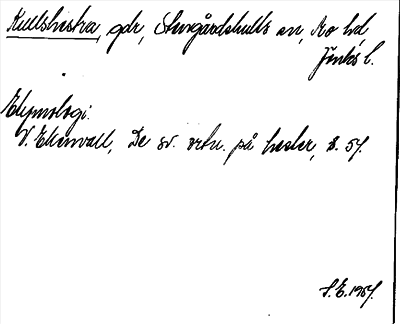 Kullshiska, gdr, Stengårdshults sn, Mo hd,
Jönk. l.
Etymologi.
V. Ekenvall, De sv. ortn. på hester, s. 54.
S.E. 1954.